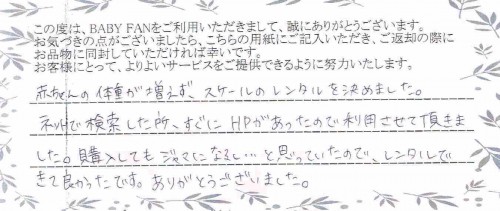 この度は、BABY FANをご利用いただきまして、誠にありがとうございます。
お気づきの点がございましたら、こちらの用紙にご記入いただき、ご返却の際に
お品物に同封していただければ幸いです。
お客様にとって、よりよいサービスをご提供できるように努力いたします。
赤ちゃんの体重が増えず、スケールのレンタルを決めました。
ネットで検索した所、すぐにHPがあったので利用させて頂きま
した。購入してもジャマになるし…と思っていたので、レンタルで
きて良かったです。ありがとうございました。